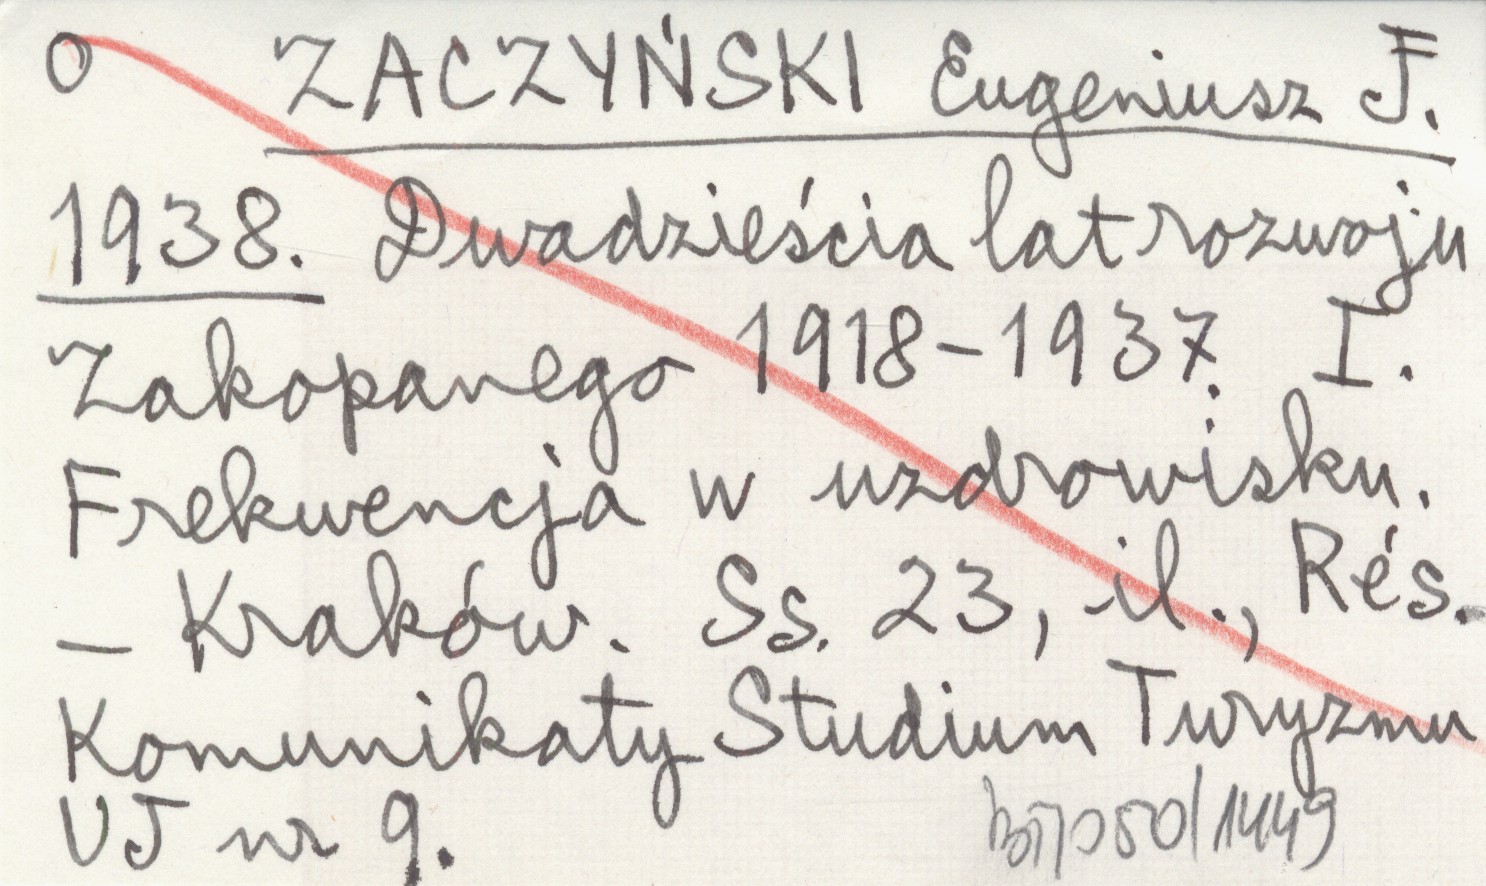 O ZACZYŃSKI Eugeniusz J.
1938. Dwadzieścia lat rozwoju
Zakopanego 1918-1937. I.
Frekwencja w uzdrowisku.
– Kraków. Ss. 23, il., Rés.
Komunikaty Studium Turyzmu
UJ nr 9.
050/1449